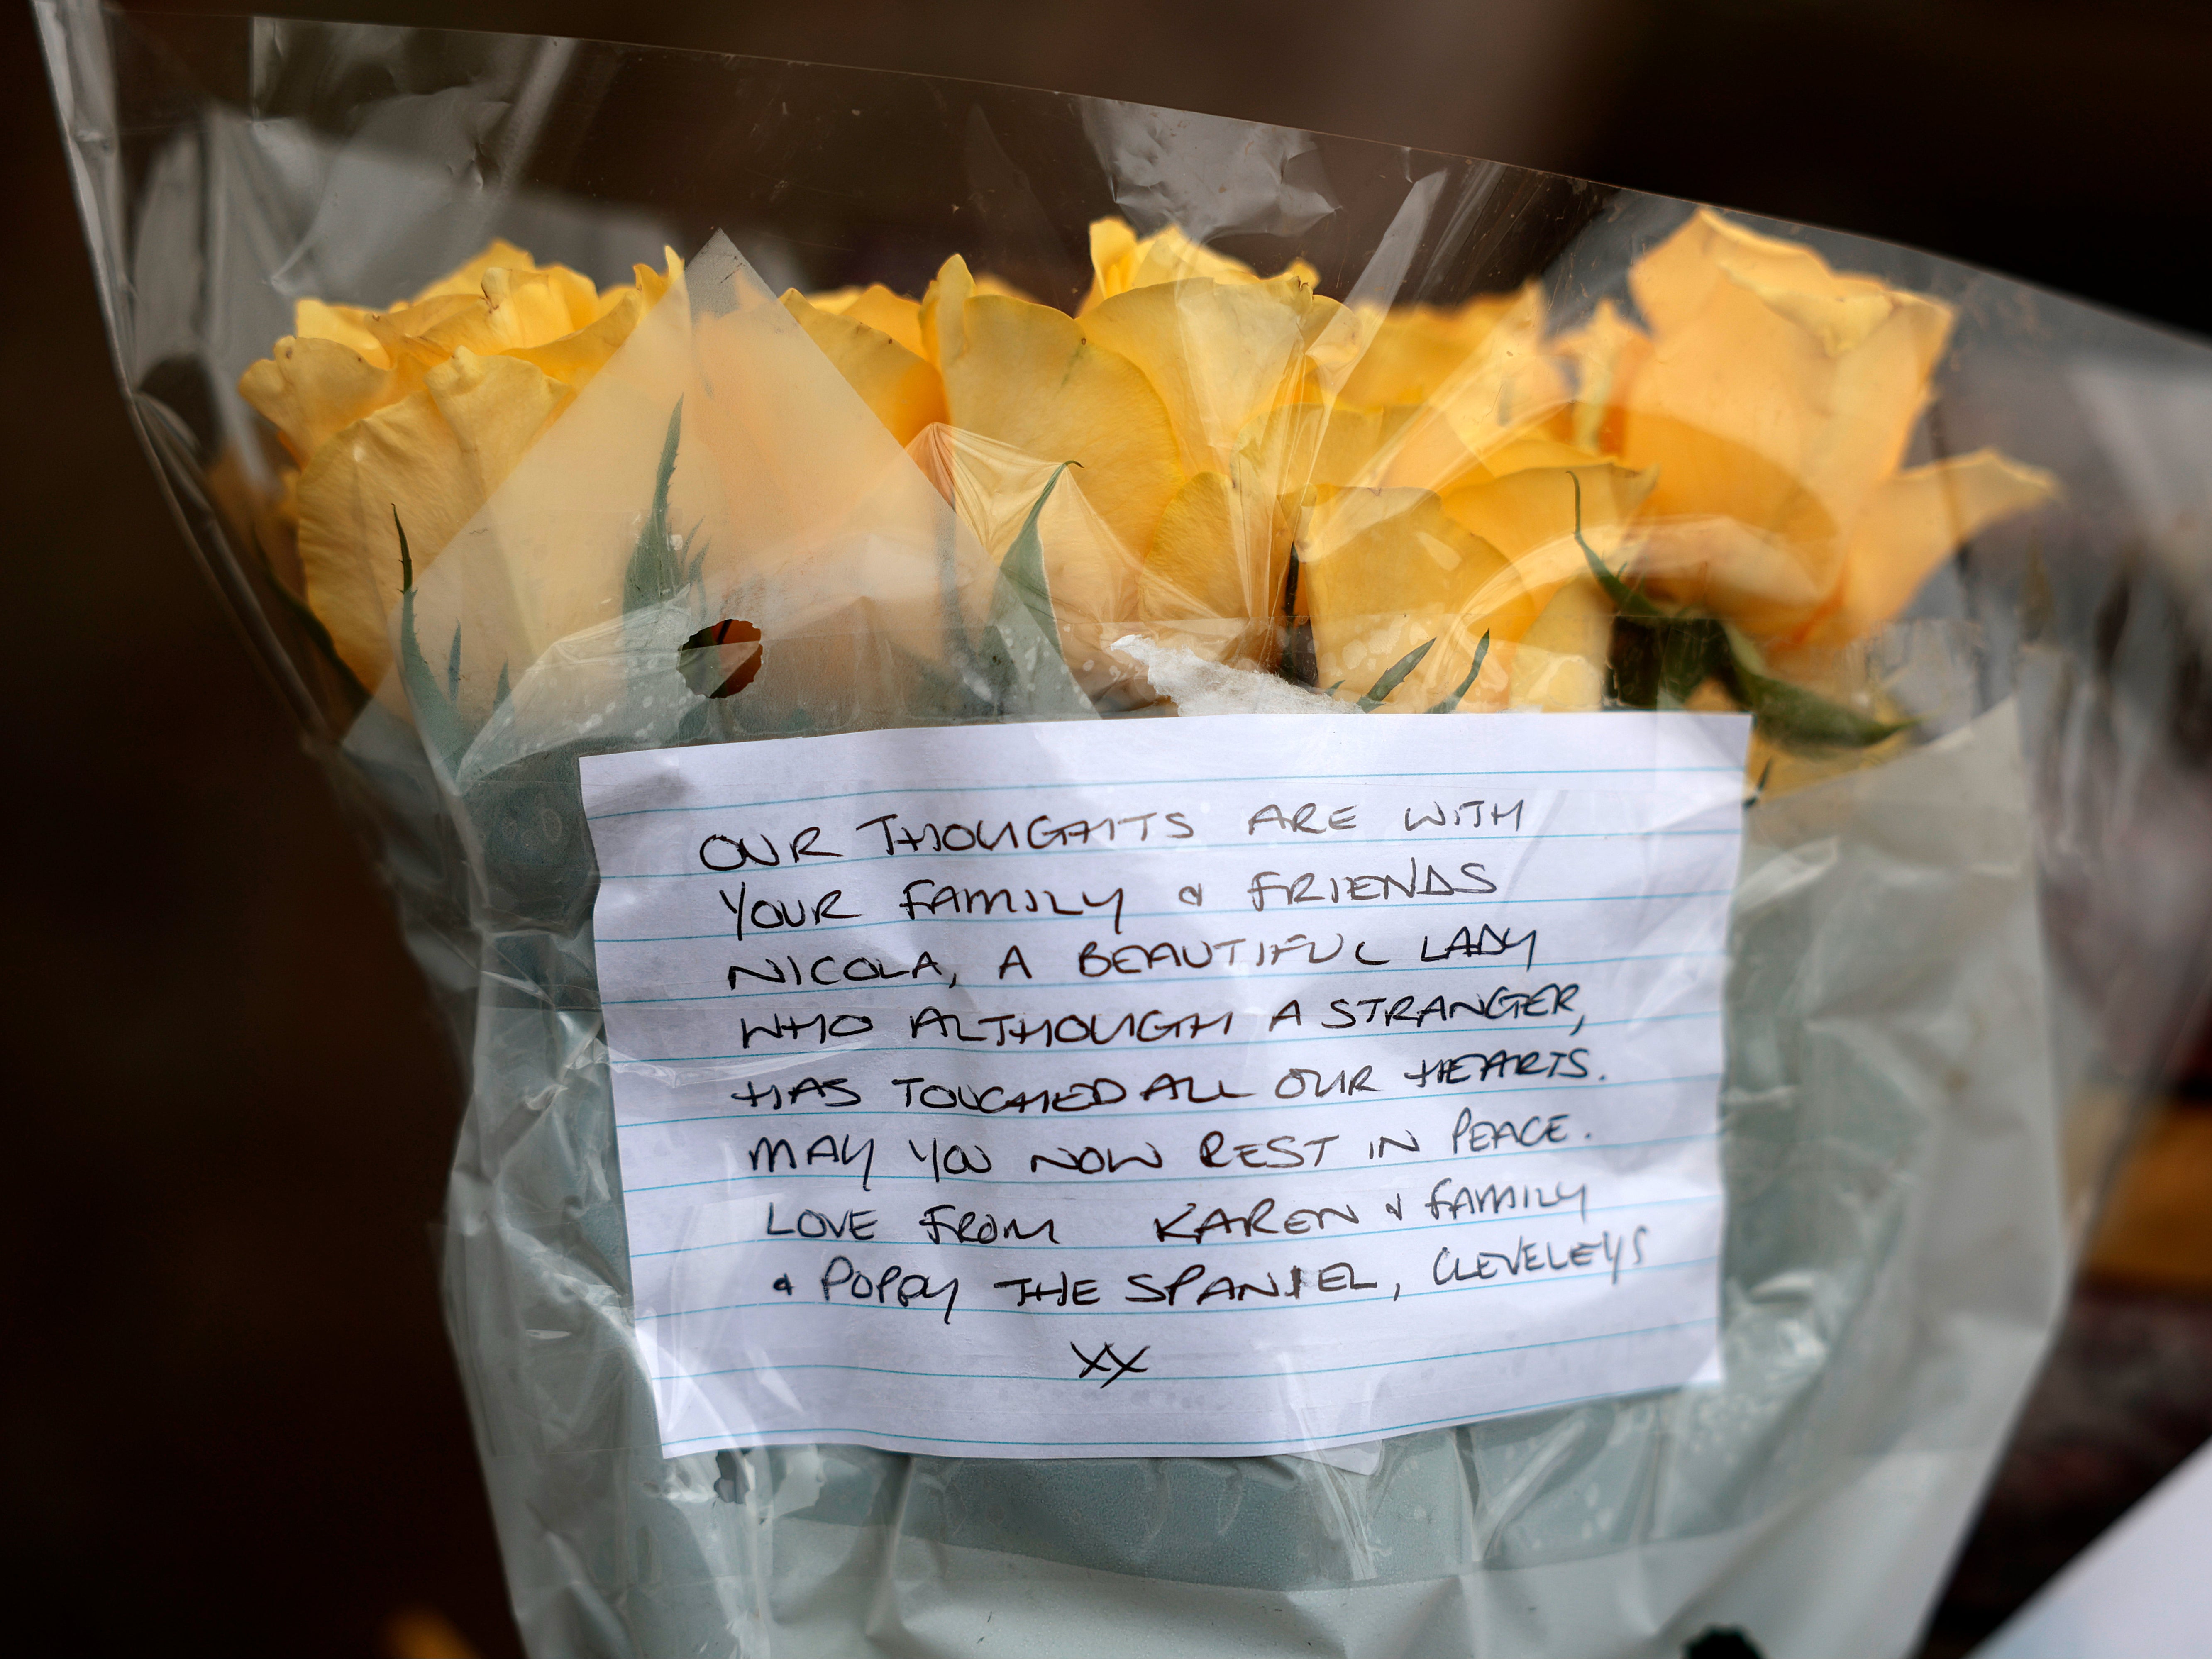 OUR THOUGHTS ARE WITH
YOUR FAMILY & FRIENDS
NICOLA, A BEAUTIFUL LADY
WHO ALTHOUGH A STRANGER,
HAS TOUCHED ALL OUR HEARTS.
MAY YOU NOW REST IN PEACE.
LOVE FROM KAREN & FAMILY
& POPPY THE SPANIEL, CLEVELEYS
XX